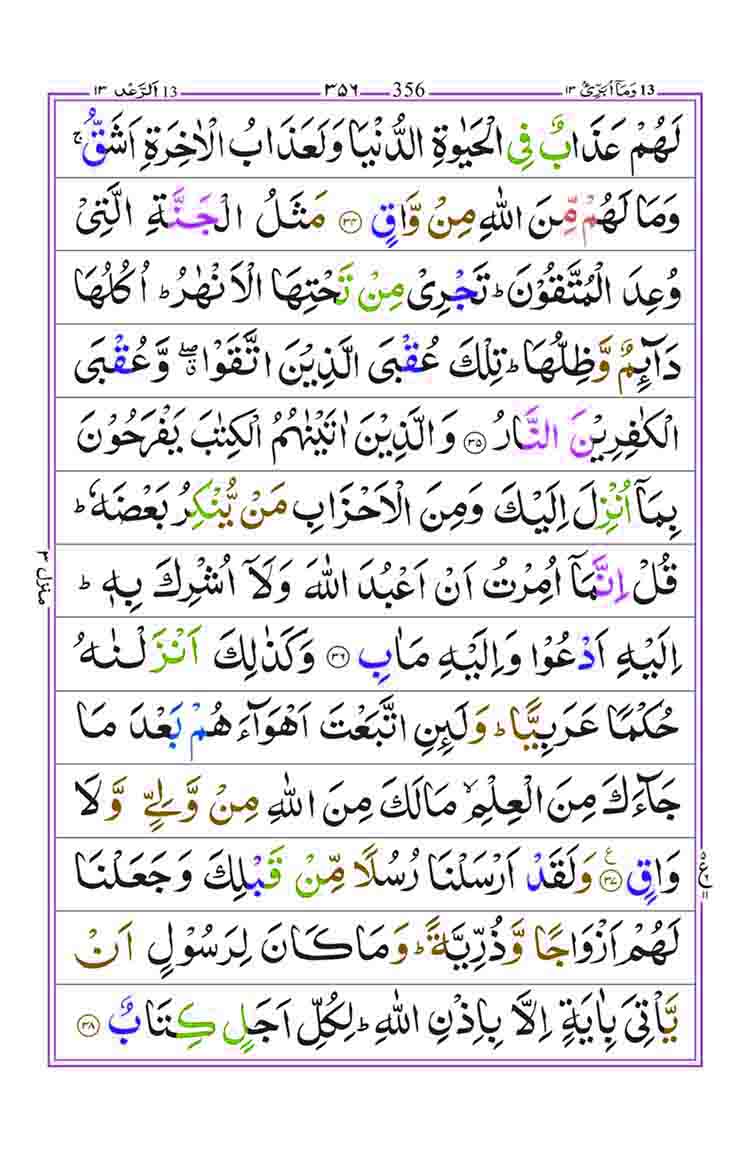 وَمَاۤ اُبَرِّئُ ١٣ 13 356 ٣٥٦ اَلرَّعْد ١٣ 13
لَهُمْ عَذَابٌ فِی الْحَیٰوةِ الدُّنْیَا وَلَعَذَابُ الْاٰخِرَةِ اَشَقُّ ۚ
وَمَا لَهُمْ مِّنَ اللّٰهِ مِنْ وَّاقٍ ۝۳۴ مَثَلُ الْجَنَّةِ الَّتِیْ
وُعِدَ الْمُتَّقُوْنَ ؕ تَجْرِیْ مِنْ تَحْتِهَا الْاَنْهٰرُ ؕ اُكُلُهَا
دَآئِمٌ وَّظِلُّهَا ؕ تِلْكَ عُقْبَی الَّذِیْنَ اتَّقَوْا ۖۗ وَّعُقْبَی
الْكٰفِرِیْنَ النَّارُ ۝۳۵ وَالَّذِیْنَ اٰتَیْنٰهُمُ الْكِتٰبَ یَفْرَحُوْنَ
بِمَاۤ اُنْزِلَ اِلَیْكَ وَمِنَ الْاَحْزَابِ مَنْ یُّنْكِرُ بَعْضَهٗ ؕ
قُلْ اِنَّمَاۤ اُمِرْتُ اَنْ اَعْبُدَ اللّٰهَ وَلَاۤ اُشْرِكَ بِهٖ ؕ
اِلَیْهِ اَدْعُوْا وَاِلَیْهِ مَاٰبِ ۝۳۶ وَكَذٰلِكَ اَنْزَلْنٰهُ
حُكْمًا عَرَبِیًّا ؕ وَلَئِنِ اتَّبَعْتَ اَهْوَآءَهُمْ بَعْدَ مَا
جَآءَكَ مِنَ الْعِلْمِ ۙ مَالَكَ مِنَ اللّٰهِ مِنْ وَّلِیٍّ وَّلَا
وَاقٍ ۝۳۷ع وَلَقَدْ اَرْسَلْنَا رُسُلًا مِّنْ قَبْلِكَ وَجَعَلْنَا
لَهُمْ اَزْوَاجًا وَّذُرِّیَّةً ؕ وَمَا كَانَ لِرَسُوْلٍ اَنْ
یَّاْتِیَ بِاٰیَةٍ اِلَّا بِاِذْنِ اللّٰهِ ؕ لِكُلِّ اَجَلٍ كِتَابٌ ۝۳۸
منزل ٣